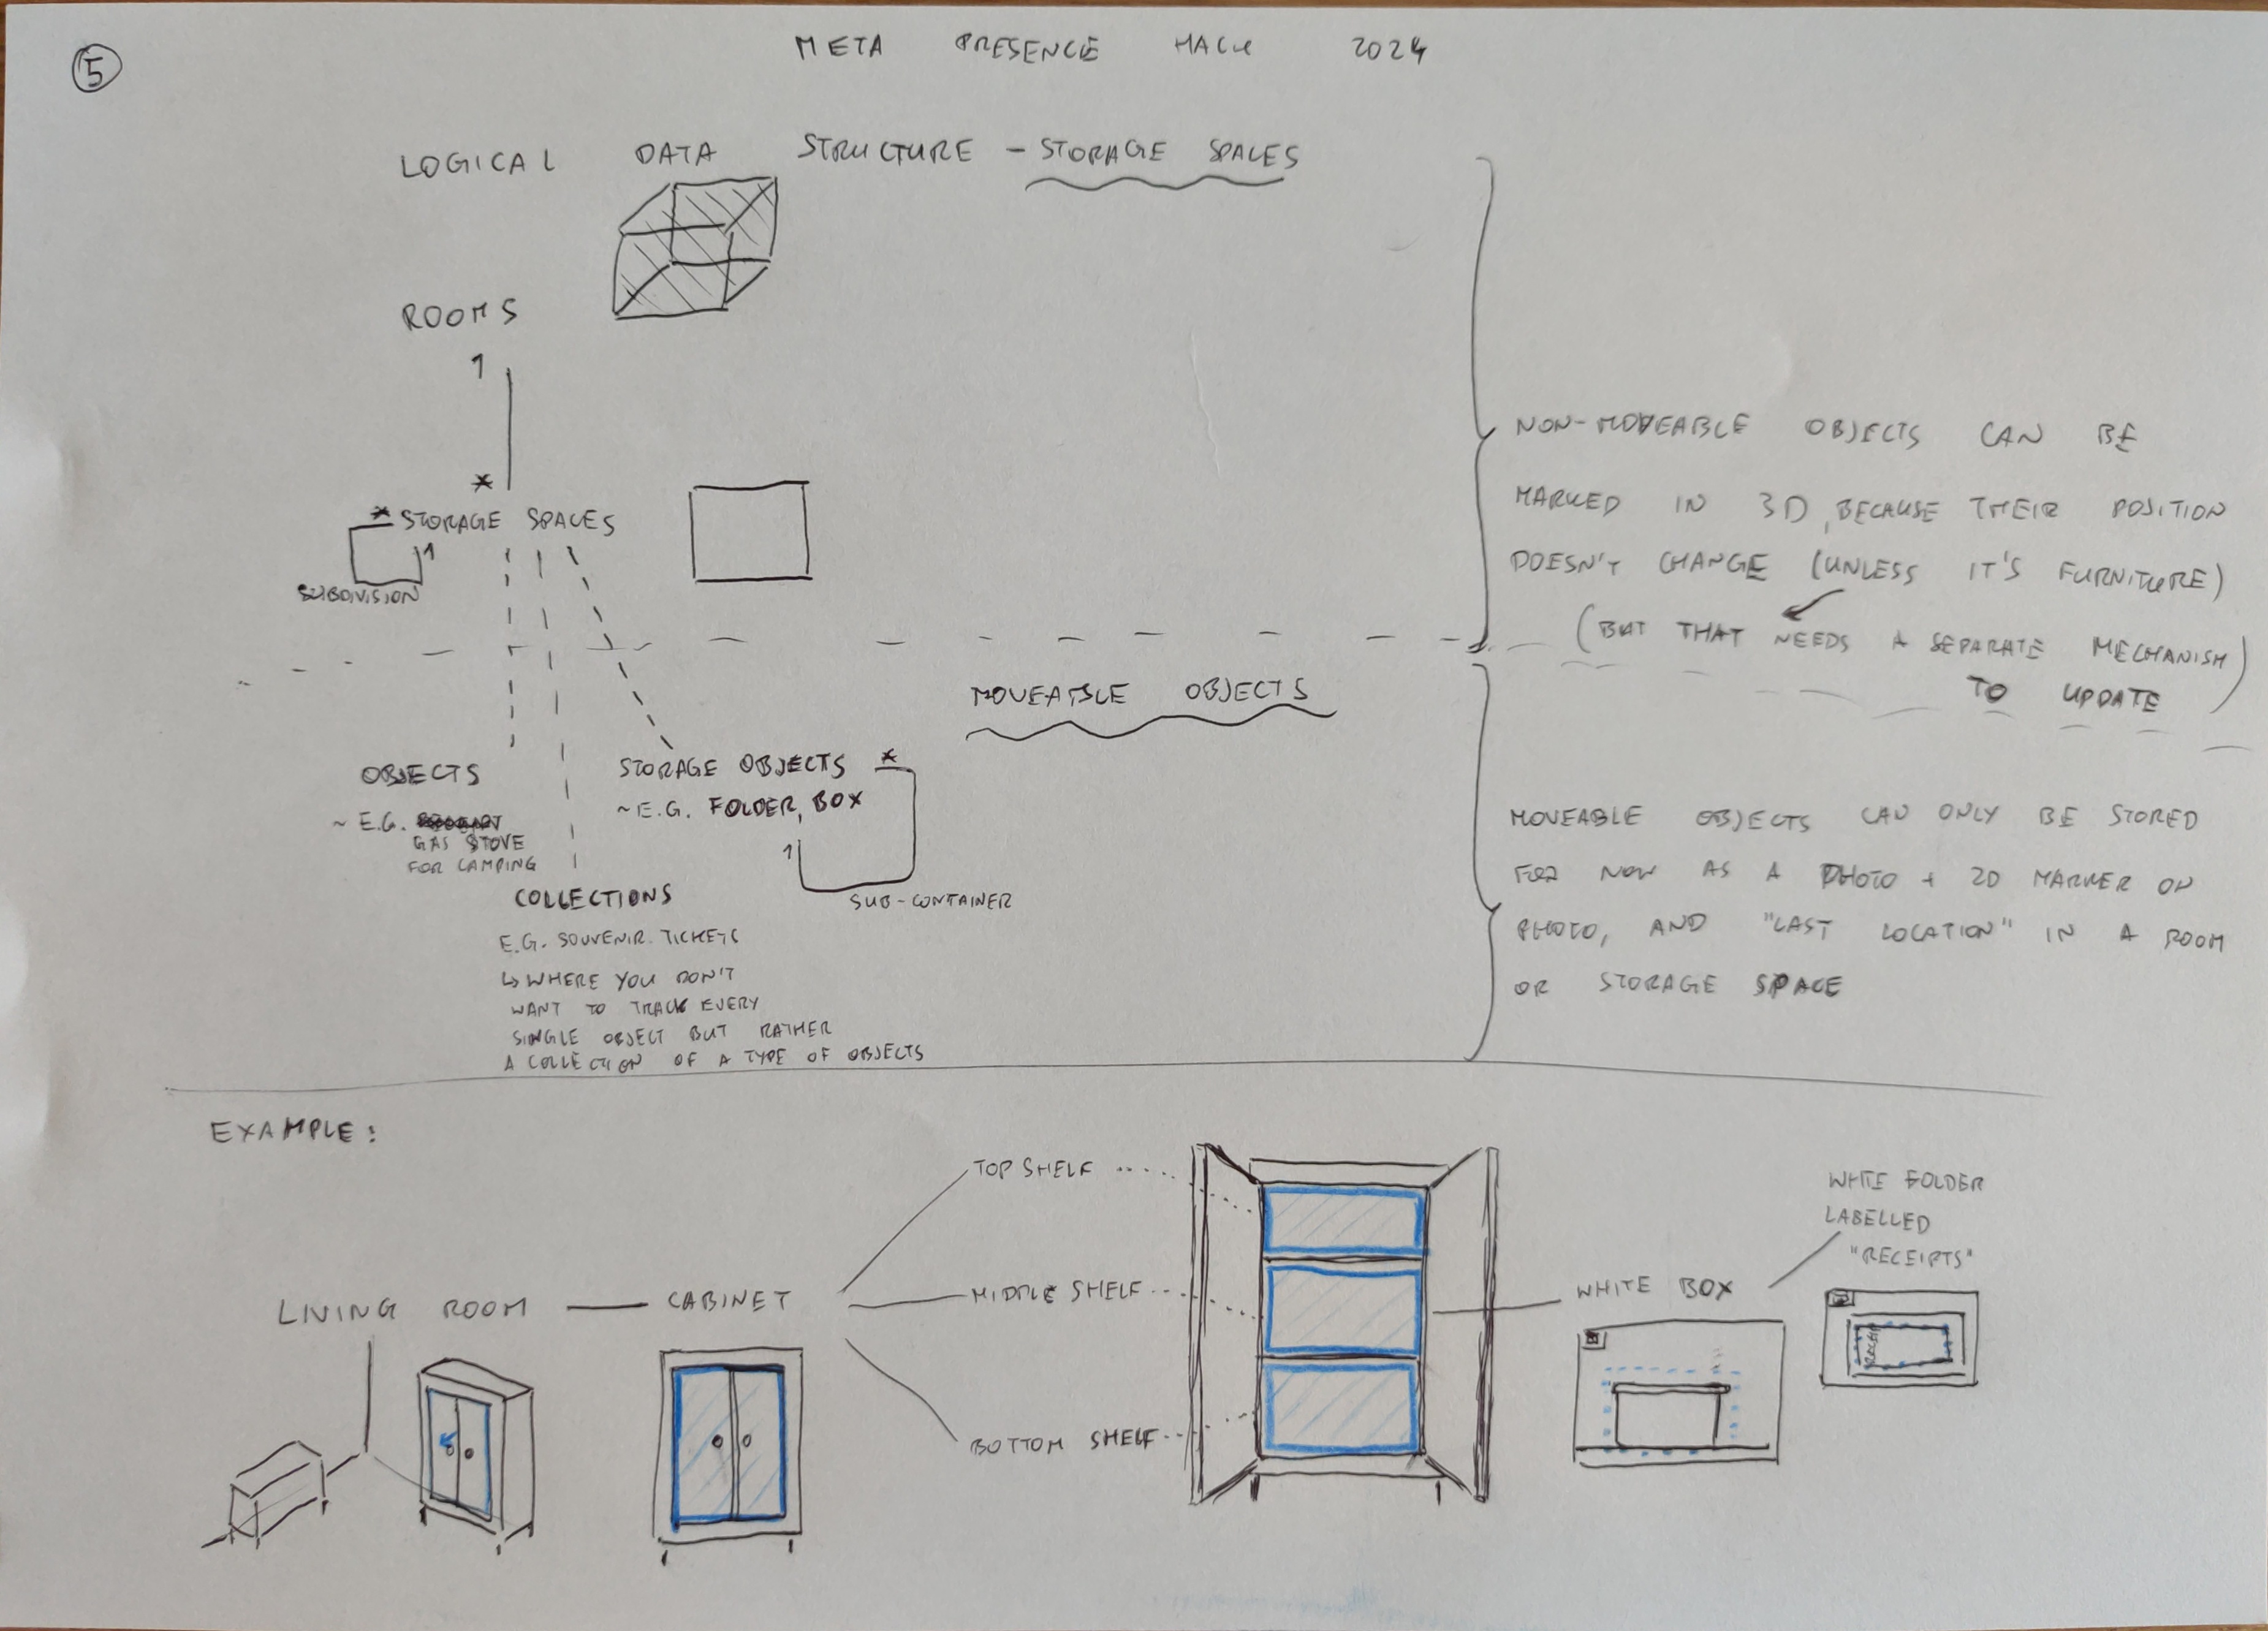 5
META PRESENCE HACK 2024
LOGICAL DATA STRUCTURE - STORAGE SPACES
ROOMS
1
*
* STORAGE SPACES
1
SUBDIVISION
NON-MOVEABLE OBJECTS CAN BE
MARKED IN 3D, BECAUSE THEIR POSITION
DOESN'T CHANGE (UNLESS IT'S FURNITURE)
(BUT THAT NEEDS A SEPARATE MECHANISM)
TO UPDATE
MOVEABLE OBJECTS
OBJECTS
~ E.G.
GAS STOVE
FOR CAMPING
STORAGE OBJECTS *
~ E.G. FOLDER, BOX
1
SUB-CONTAINER
COLLECTIONS
E.G. SOUVENIR. TICKETS
↳ WHERE YOU DON'T
WANT TO TRACK EVERY
SINGLE OBJECT BUT RATHER
A COLLECTION OF A TYPE OF OBJECTS
MOVEABLE OBJECTS CAN ONLY BE STORED
FOR NOW AS A PHOTO + 2D MARKER ON
PHOTO, AND "LAST LOCATION" IN A ROOM
OR STORAGE SPACE
EXAMPLE:
LIVING ROOM
CABINET
TOP SHELF
MIDDLE SHELF
BOTTOM SHELF
WHITE BOX
WHITE FOLDER
LABELLED
"RECEIPTS"